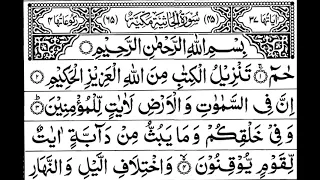 اٰيَاتُهَا ٣٧ (٤٥) سُوْرَةُ الْجَاثِيَةِ مَكِّيَّةٌ (٦٥) رُكُوْعَاتُهَا ٤
بِسْمِ اللّٰهِ الرَّحْمٰنِ الرَّحِيْمِ
حٰمٓ ۝١ تَنْزِيْلُ الْكِتٰبِ مِنَ اللّٰهِ الْعَزِيْزِ الْحَكِيْمِ ۝٢
اِنَّ فِى السَّمٰوٰتِ وَ الْاَرْضِ لَاٰيٰتٍ لِّلْمُؤْمِنِيْنَ ۝٣
وَ فِىْ خَلْقِكُمْ وَ مَا يَبُثُّ مِنْ دَآبَّةٍ اٰيٰتٌ
لِّقَوْمٍ يُّوْقِنُوْنَ ۝٤ وَ اخْتِلَافِ الَّيْلِ وَ النَّهَارِ